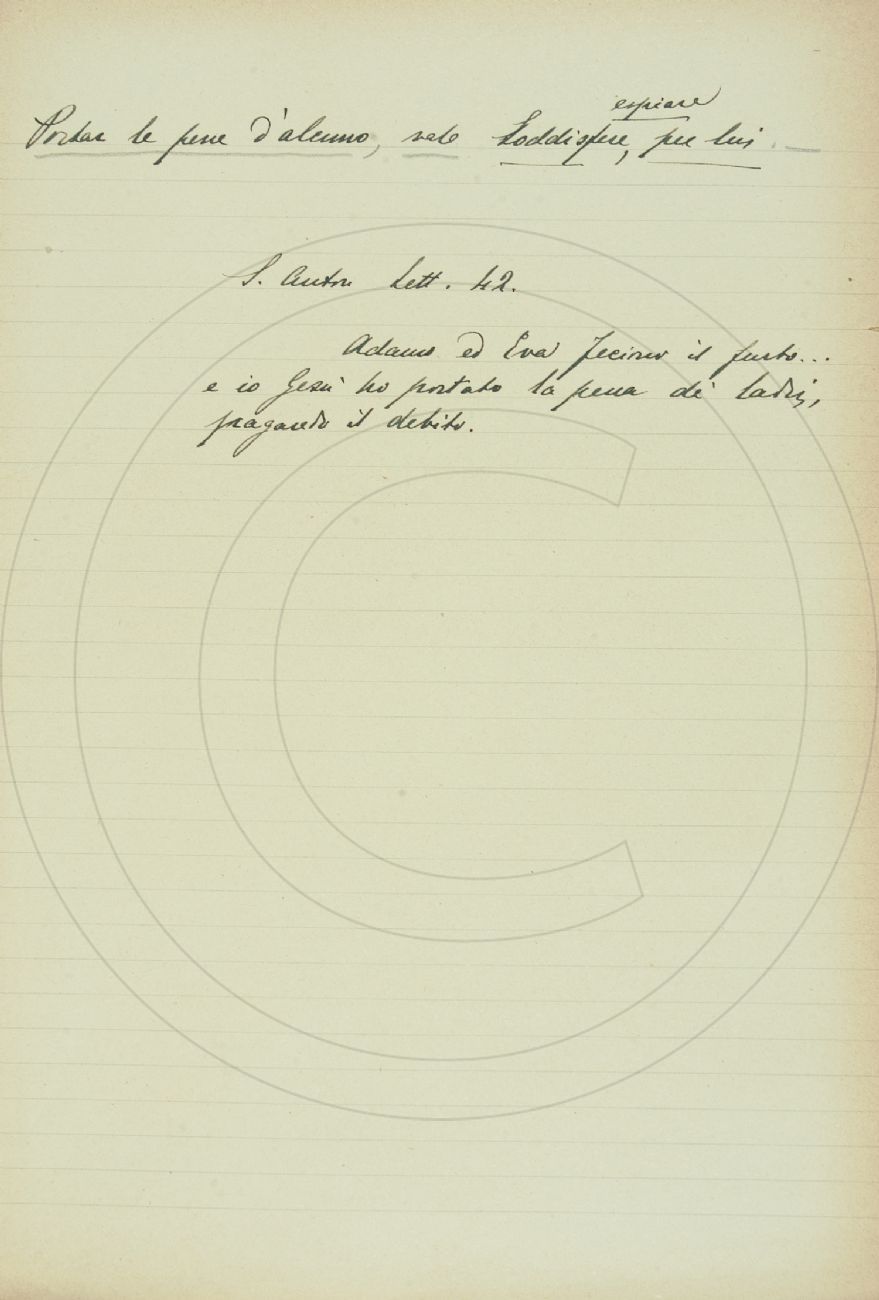 espiare
Portar le pene d'alcuno, vale Soddisfere, per lui.
S. Anton Lett. 42.
Adamo ed Eva fecino il furto...
e io Gesù ho portato la pena de' ladri,
pagando il debito.